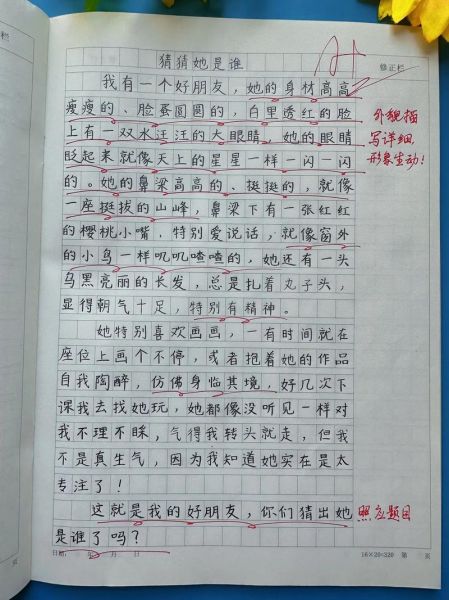 猜猜她是谁
A+
修正栏
我有一个好朋友，她的身材高高
瘦瘦的、脸蛋圆圆的，白里透红的脸
上有一双水汪汪的大眼睛，她的眼睛
眨起来就像天上的星星一样一闪一闪
的。她的鼻梁高高的、挺挺的，就像
一座挺拔的山峰，鼻梁下有一张红红
的樱桃小嘴，特别爱说话，就像窗外
的小鸟一样叽叽喳喳的，她还有一头
乌黑亮丽的长发，总是扎着丸子头，
显得朝气十足，特别有精神。
外貌描
写详细，
形象生动！
她特别喜欢画画，一有时间就在
座位上画个不停，或者抱着她的作品
自我陶醉，仿佛身临其境，好几次下
课我去找她玩，她都像没听见一样对
我不理不睬，气得我转头就走，但我
不是真生气，因为我知道她实在是太
专注了！
这就是我的好朋友，你们猜出她
是谁了吗？
照应题目
日期： 年 月 日
16×20=320 第 页
栏
页